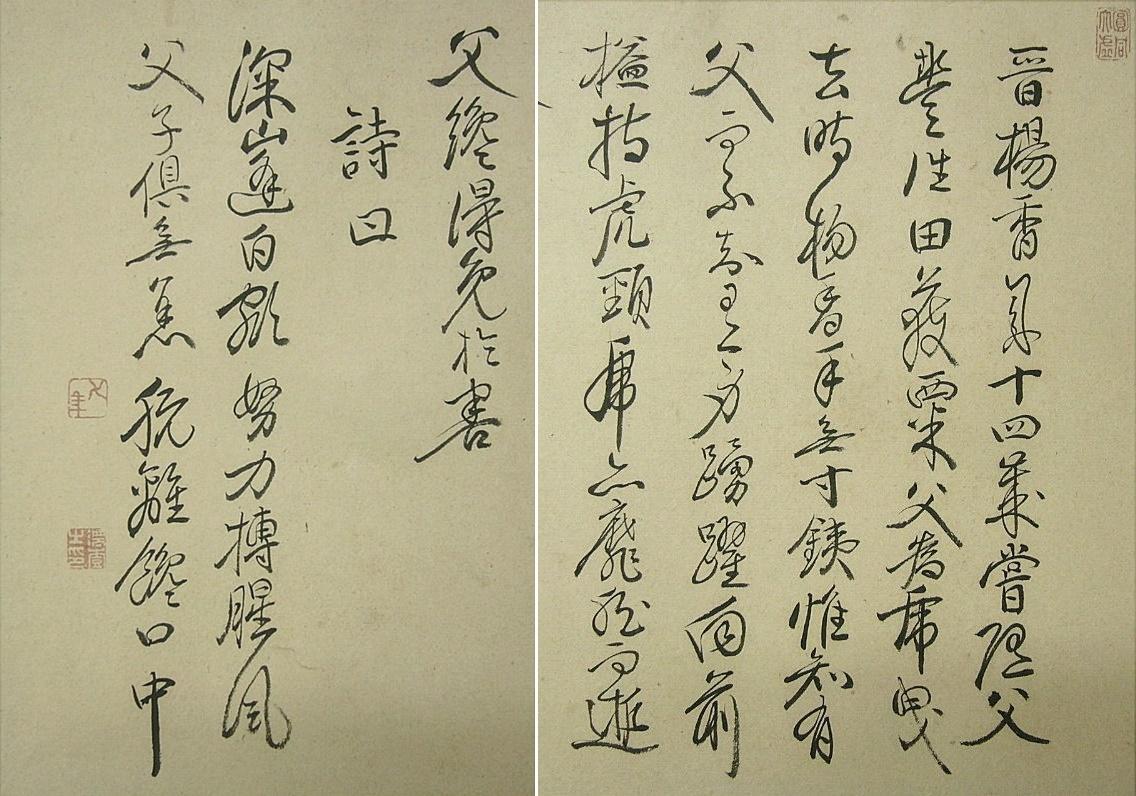 晉楊香年十四歲嘗隨父
豐往田獲粟父為虎曳
去時楊香手無寸鐵惟知有
父而不知有身踴躍向前
搤持虎頸虎亦靡然而逝
父纔得免於害
詩曰
深山逢白額努力搏腥風
父子俱無恙脫離饞口中